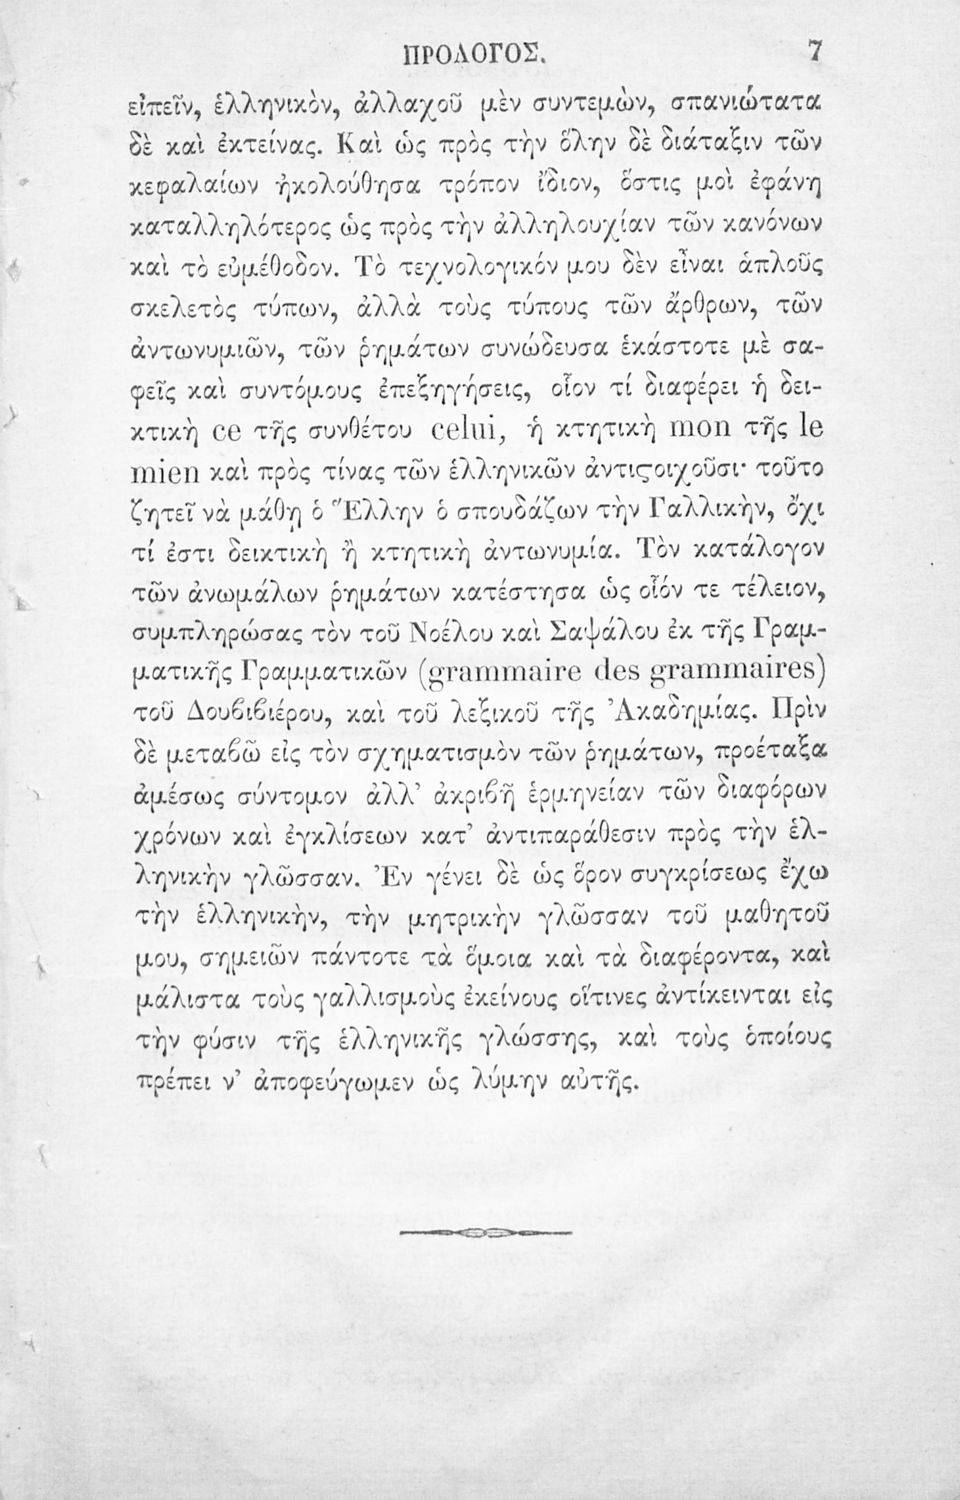 ΠΡΟΛΟΓΟΣ. 7
εἰπεῖν, ἑλληνικὸν, ἀλλαχοῦ μὲν συντεμὼν, σπανιώτατα
δὲ καὶ ἐκτείνας. Καὶ ὡς πρὸς τὴν ὅλην δὲ διάταξιν τῶν
κεφαλαίων ἠκολούθησα τρόπον ἴδιον, ὅστις μοὶ ἐφάνη
καταλληλότερος ὡς πρὸς τὴν ἀλληλουχίαν τῶν κανόνων
καὶ τὸ εὐμέθοδον. Τὸ τεχνολογικόν μου δὲν εἶναι ἁπλοῦς
σκελετὸς τύπων, ἀλλὰ τοὺς τύπους τῶν ἄρθρων, τῶν
ἀντωνυμιῶν, τῶν ῥημάτων συνώδευσα ἑκάστοτε μὲ σα-
φεῖς καὶ συντόμους ἐπεξηγήσεις, οἷον τί διαφέρει ἡ δει-
κτικὴ ce τῆς συνθέτου celui, ἡ κτητικὴ mon τῆς le
mien καὶ πρὸς τίνας τῶν ἑλληνικῶν ἀντιϛοιχοῦσι· τοῦτο
ζητεῖ νὰ μάθῃ ὁ Ἕλλην ὁ σπουδάζων τὴν Γαλλικὴν, ὄχι
τί ἐστι δεικτικὴ ἢ κτητικὴ ἀντωνυμία. Τὸν κατάλογον
τῶν ἀνωμάλων ῥημάτων κατέστησα ὡς οἷόν τε τέλειον,
συμπληρώσας τὸν τοῦ Νοέλου καὶ Σαψάλου ἐκ τῆς Γραμ-
ματικῆς Γραμματικῶν (grammaire des grammaires)
τοῦ Δουβιβιέρου, καὶ τοῦ λεξικοῦ τῆς Ἀκαδημίας. Πρὶν
δὲ μεταβῶ εἰς τὸν σχηματισμὸν τῶν ῥημάτων, προέταξα
ἀμέσως σύντομον ἀλλ' ἀκριβῆ ἑρμηνείαν τῶν διαφόρων
χρόνων καὶ ἐγκλίσεων κατ' ἀντιπαράθεσιν πρὸς τὴν ἑλ-
ληνικὴν γλῶσσαν. Ἐν γένει δὲ ὡς ὅρον συγκρίσεως ἔχω
τὴν ἑλληνικὴν, τὴν μητρικὴν γλῶσσαν τοῦ μαθητοῦ
μου, σημειῶν πάντοτε τὰ ὅμοια καὶ τὰ διαφέροντα, καὶ
μάλιστα τοὺς γαλλισμοὺς ἐκείνους οἵτινες ἀντίκεινται εἰς
τὴν φύσιν τῆς ἑλληνικῆς γλώσσης, καὶ τοὺς ὁποίους
πρέπει ν' ἀποφεύγωμεν ὡς λύμην αὐτῆς.